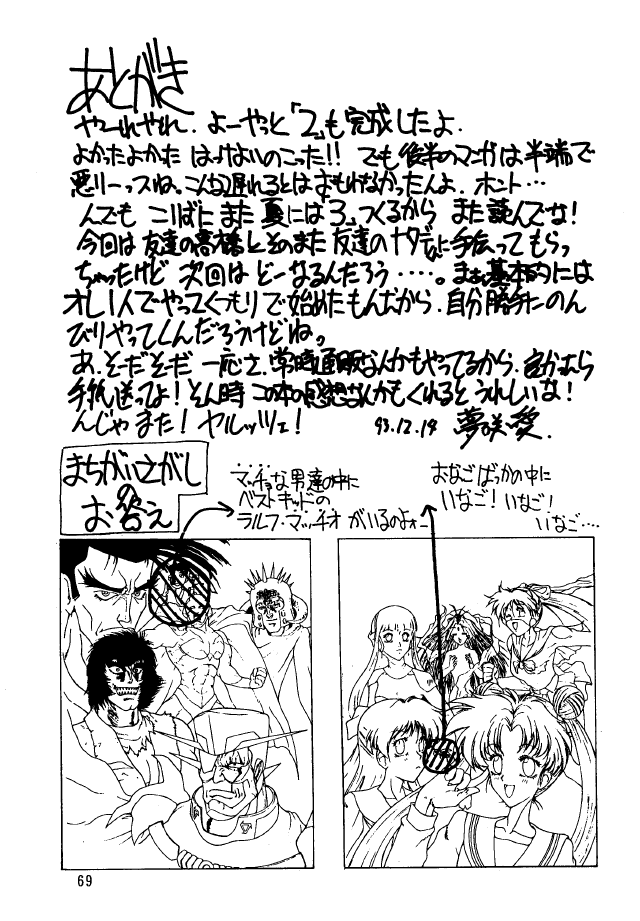 あとがき
やーれやれ. よーやっと「2」も完成したよ.
よかったよかった はっけよいのこった!! でも後半のマンガは半端で
悪リーっスね。こんな遅れるとはおもわなかったんよ. ホント…
んでも こりずに また 夏には「3」つくるから また読んでな!
今回は 友達の高橋とそのまた 友達の 手伝って もらっ
ちゃったけど 次回は どーなるんだろう ‥‥. まぁ基本的には
オレ1人でやってくつもりで始めたもんだから. 自分勝手にのん
びりやってくんだろうけどね。
あ. そーだそーだ 一応さ. 常時通販なんかもやってるから.
手紙送ってよ! そん時 この本の感想なんかもくれると うれしいな!
んじゃまた! ヤルッツェ! 93.12.19 夢咲愛.
まちがいさがし
の
お答え
マッチョな男達の中に
ベストキッドの
ラルフ・マッチオ がいるのよォー
おなごばっかの中に
いなご! いなご!
いなご‥‥
69